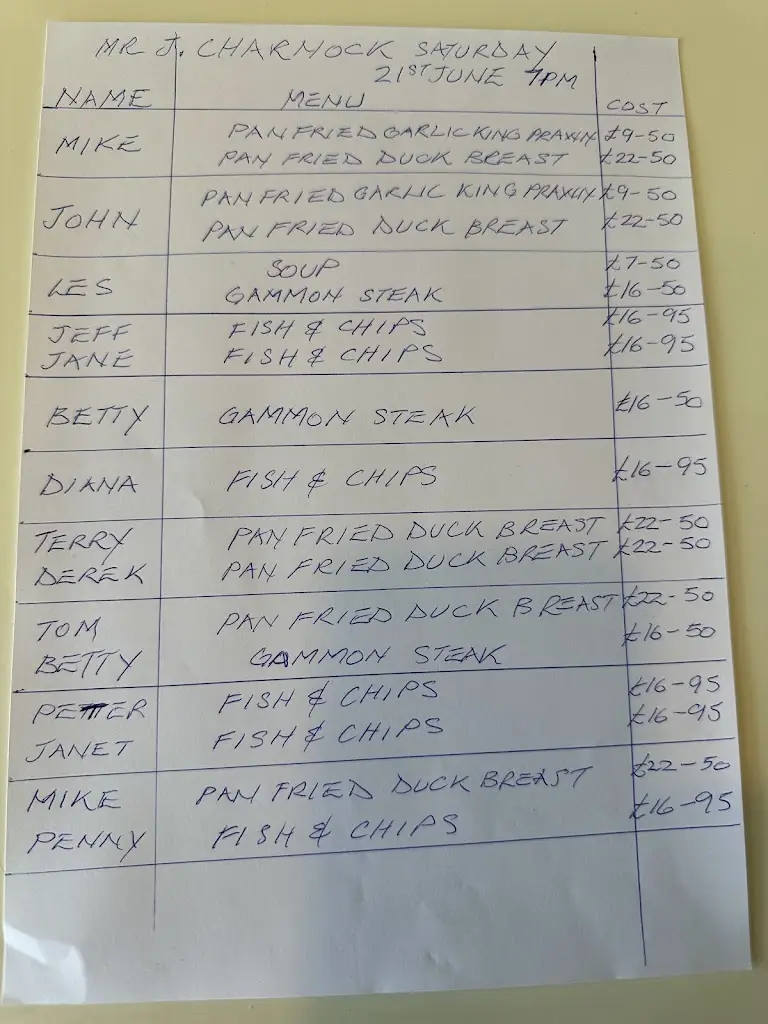 MR J. CHARNOCK SATURDAY
21ST JUNE 7PM
NAME MENU COST
MIKE PAN FRIED GARLIC KING PRAWN £9-50
PAN FRIED DUCK BREAST £22-50
JOHN PAN FRIED GARLIC KING PRAWN £9-50
PAN FRIED DUCK BREAST £22-50
LES SOUP £7-50
GAMMON STEAK £16-50
JEFF FISH & CHIPS £16-95
JANE FISH & CHIPS £16-95
BETTY GAMMON STEAK £16-50
DIANA FISH & CHIPS £16-95
TERRY PAN FRIED DUCK BREAST £22-50
DEREK PAN FRIED DUCK BREAST £22-50
TOM PAN FRIED DUCK BREAST £22-50
BETTY GAMMON STEAK £16-50
PETER FISH & CHIPS £16-95
JANET FISH & CHIPS £16-95
MIKE PAN FRIED DUCK BREAST £22-50
PENNY FISH & CHIPS £16-95